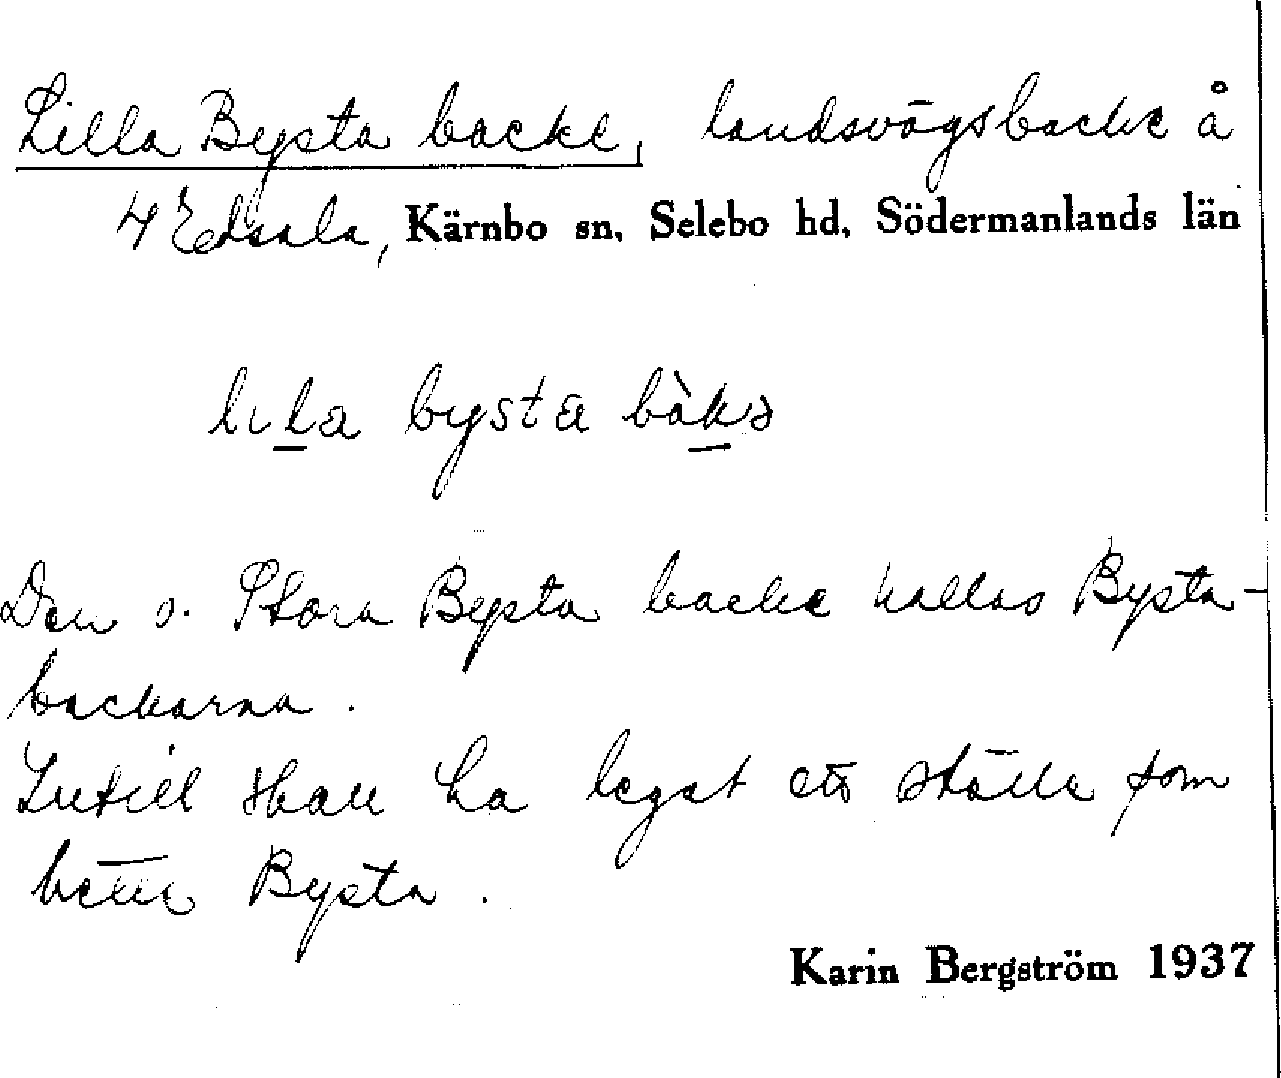 Lilla Bysta backe, landsvägsbacke å
4 Edsala, Kärnbo sn, Selebo hd, Södermanlands län
lila bysta bàkə
Den o. Stora Bysta backe kallas Bysta-
backarna.
Intill skall ha legat ett ställe som
hette Bysta.
Karin Bergström 1937